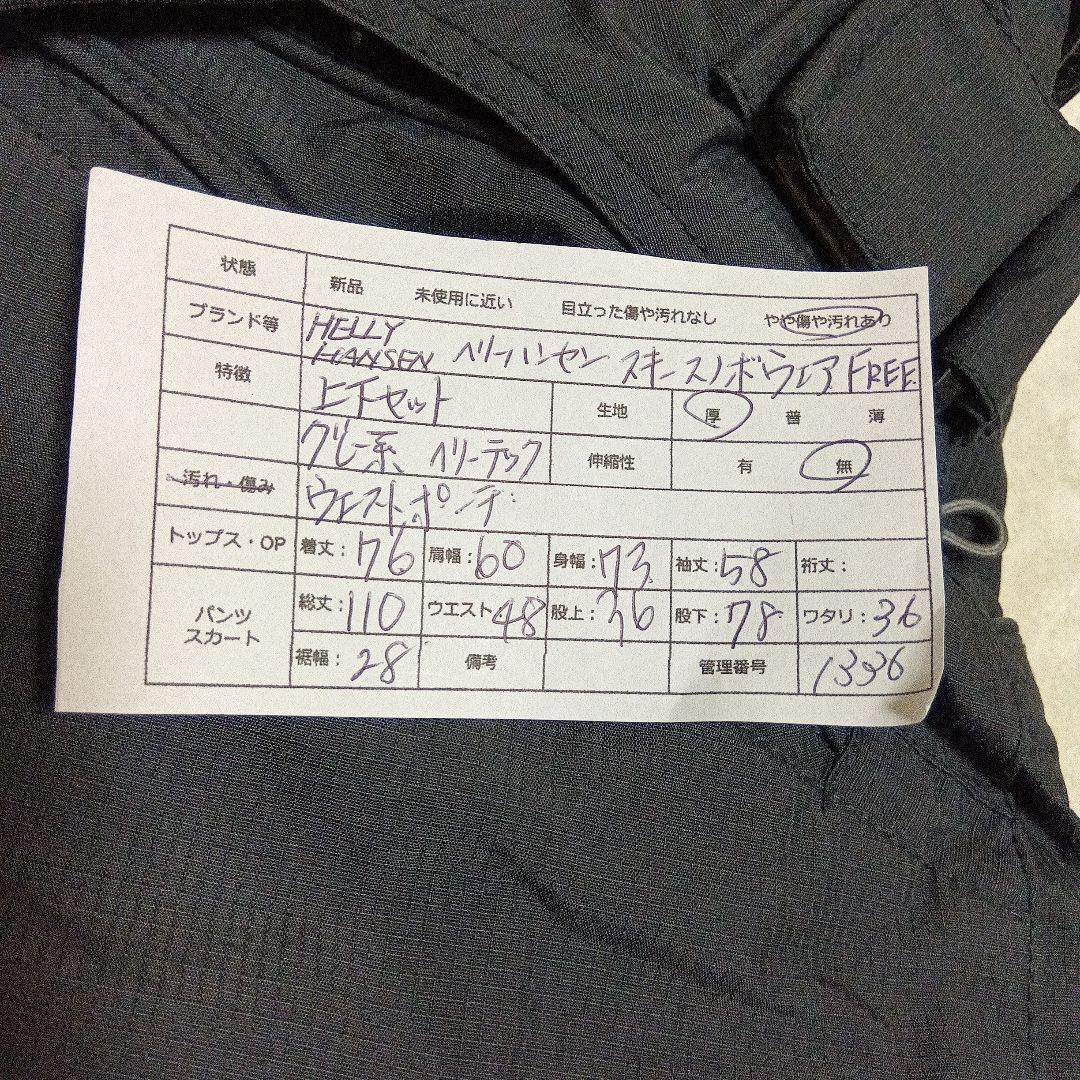 状態 新品 未使用に近い 目立った傷や汚れなし やや傷や汚れあり
ブランド等 HELLY HANSEN ヘリーハンセン スキースノボウェア FREE
特徴 上下セット 生地 厚 普 薄
グレー系 ヘリーテック 伸縮性 有 無
汚れ・傷み ウェストポーチ
トップス・OP 着丈:76 肩幅:60 身幅:73 袖丈:58 裄丈:
パンツ スカート 総丈:110 ウエスト48 股上:36 股下:78 ワタリ:36
裾幅:28 備考 管理番号 1336